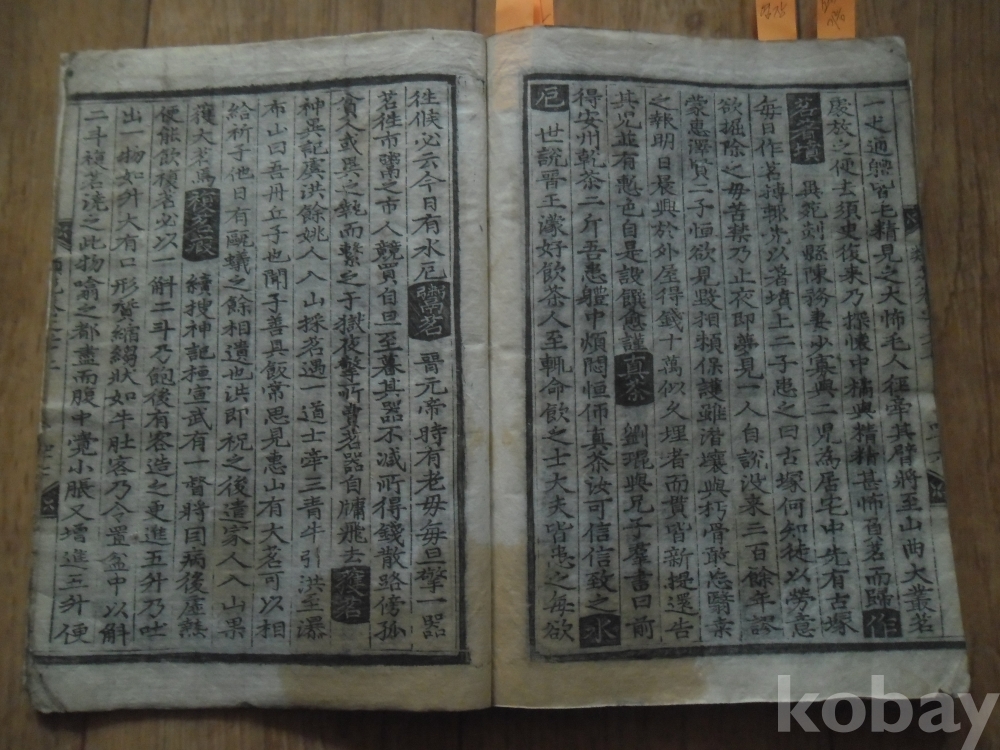 一丈通體皆毛精見之大怖毛人徑牽其臂將至山曲大叢茗
處放之便去須臾復来乃探懷中橘與精精甚怖負茗而歸作
茗 墳 異苑剡縣陳務妻少寡與二児為居宅中先有古塚
每日作茗轉輒先以著墳上二子患之曰古塚何知徒以勞意
欲掘除之毋苦禁乃止夜即夢見一人自說没来三百餘年謬
蒙惠澤賢二子恒欲見毀相頼保護雖潜壤與朽骨敢忘翳素
之報明日晨興於外屋得錢十萬似久埋者而貫皆新提還告
其児並有慙色自是設饌愈謹 真茶 劉琨與兄子羣書曰前
得安州乾茶二斤吾患軆中煩悶恒仰真茶汝可信信致之水
厄 世説晉王濛好飲茶人至輒命飲之士大夫皆患之每欲
徃候必云今日有水厄 鬻茗 晉元帝時有老毋每旦擎一器
茗徃市鬻之市人競買自旦至暮其器不減所得錢散路傍孤
貧人或異之執而繫之于獄夜擎所賣茗器自牖飛去 獲茗
神異記虞洪餘姚人入山採茗遇一道士牽三青牛引洪至瀑
布山曰吾丹丘子也聞子善具飯常思見惠山有大茗可以相
給祈子他日有甌蟻之餘相遺也洪即祝之後遣家人入山果
獲大茗焉 複茗瘕 續搜神記桓宣武有一督將因病後虛熱
便能飲複茗必以一斛二斗乃飽後有客造之更進五升乃吐
出一物如升大有口形質縮縐狀如牛肚客乃令置盆中以斛
二斗複茗澆之此物噏之都盡而腹中覺小脹又增進五升便
kobay